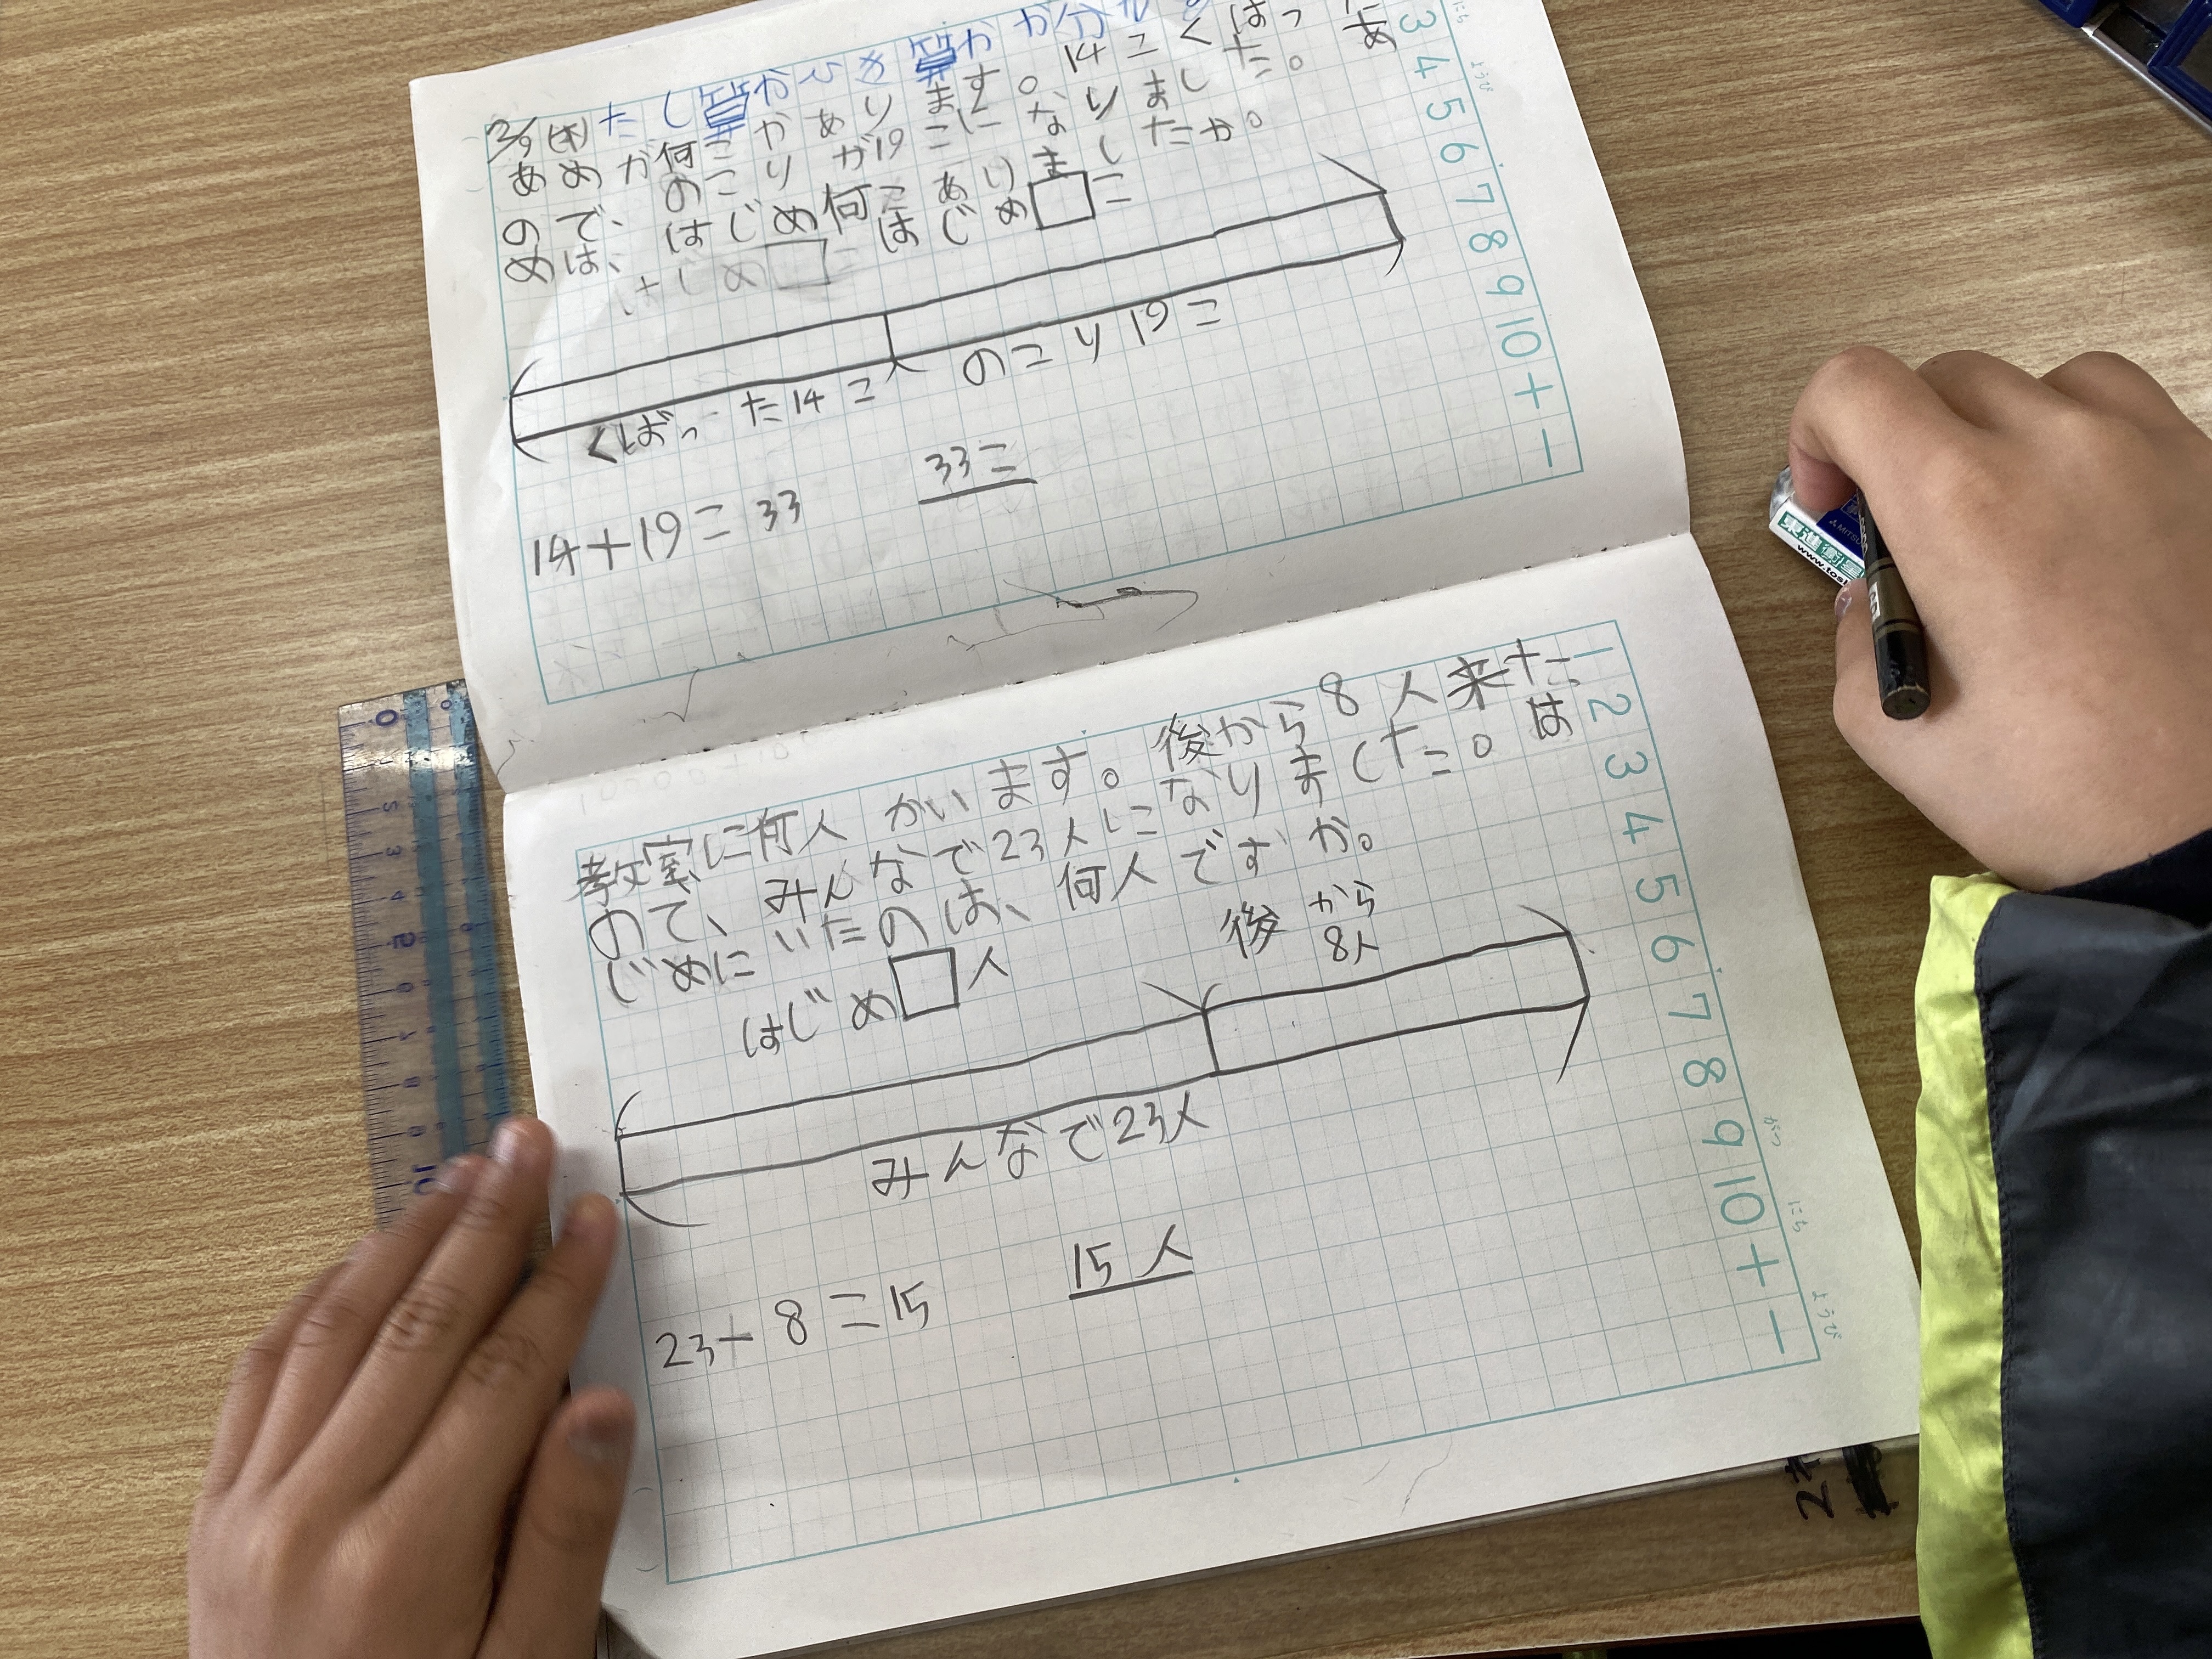 2/9(木)たし算かひき算か
あめが何こかあります。14こくばった
ので、のこりが19こになりました。はじ
めは、はじめ何こありましたか。
はじめ□こ
くばった14こ
のこり19こ
14+19=33
33こ
教室に何人かいます。後から8人来た
ので、みんなで23人になりました。は
じめにいたのは、何人ですか。
はじめ□人
後から
8人
みんなで23人
23-8=15
15人
3 4 5 6 7 8 9 10 + -
1 2 3 4 5 6 7 8 9 10 + -
にち
ようび
がつ
にち
ようび
東進衛星
MITSU
www.tosh